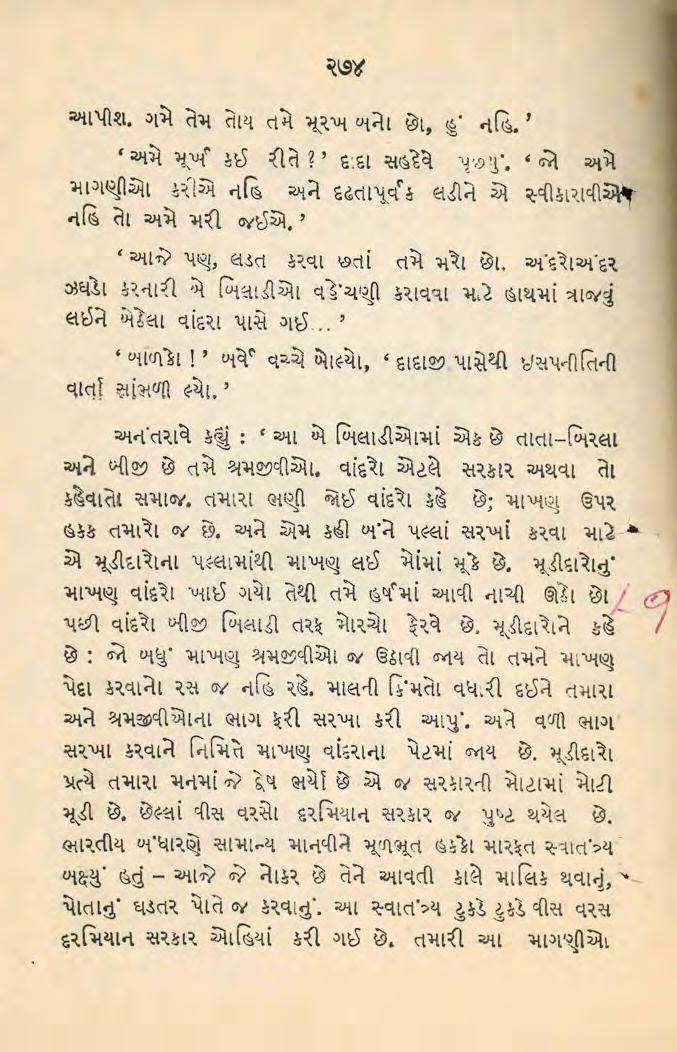 ૨૭૪
આપીશ. ગમે તેમ તોય તમે મૂરખ બનો છો, હું નહિ.’
‘અમે મૂર્ખ કઈ રીતે ?’ દાદા સહદેવે પૂછ્યું. ‘જો અમે
માગણીઓ કરીએ નહિ અને દૃઢતાપૂર્વક લડીને એ સ્વીકારાવીએ
નહિ તો અમે મરી જઈએ.’
‘આજે પણ, લડત કરવા છતાં તમે મરો છો. અંદરોઅંદર
ઝઘડો કરનારી બે બિલાડીઓ વહેંચણી કરાવવા માટે હાથમાં ત્રાજવું
લઈને બેઠેલા વાંદરા પાસે ગઈ...’
‘બાળકો !’ બર્વે વચ્ચે બોલ્યો, ‘દાદાજી પાસેથી ઇસપનીતિની
વાર્તા સાંભળી લ્યો.’
અનંતરાવે કહ્યું : ‘આ બે બિલાડીઓમાં એક છે તાતા-બિરલા
અને બીજી છે તમે શ્રમજીવીઓ. વાંદરો એટલે સરકાર અથવા તો
કહેવાતો સમાજ. તમારા ભણી જોઈ વાંદરો કહે છે; માખણ ઉપર
હક્ક તમારો જ છે. અને એમ કહી બંને પલ્લાં સરખાં કરવા માટે
એ મૂડીદારોના પલ્લામાંથી માખણ લઈ મોંમાં મૂકે છે. મૂડીદારોનું
માખણ વાંદરો ખાઈ ગયો તેથી તમે હર્ષમાં આવી નાચી ઊઠો છો
પછી વાંદરો બીજી બિલાડી તરફ મોરચો ફેરવે છે. મૂડીદારોને કહે
છે : જો બધું માખણ શ્રમજીવીઓ જ ઉઠાવી જાય તો તમને માખણ
પેદા કરવાનો રસ જ નહિ રહે. માલની કિંમતો વધારી દઈને તમારા
અને શ્રમજીવીઓના ભાગ ફરી સરખા કરી આપું. અને વળી ભાગ
સરખા કરવાને નિમિત્તે માખણ વાંદરાના પેટમાં જાય છે. મૂડીદારો
પ્રત્યે તમારા મનમાં જે દ્વેષ ભર્યો છે એ જ સરકારની મોટામાં મોટી
મૂડી છે. છેલ્લાં વીસ વરસો દરમિયાન સરકાર જ પુષ્ટ થયેલ છે.
ભારતીય બંધારણે સામાન્ય માનવીને મૂળભૂત હક્કો મારફત સ્વાતંત્ર્ય
બક્ષ્યું હતું – આજે જે નોકર છે તેને આવતી કાલે માલિક થવાનું,
પોતાનું ઘડતર પોતે જ કરવાનું. આ સ્વાતંત્ર્ય ટુકડે ટુકડે વીસ વરસ
દરમિયાન સરકાર ઓહિયાં કરી ગઈ છે. તમારી આ માગણીઓ